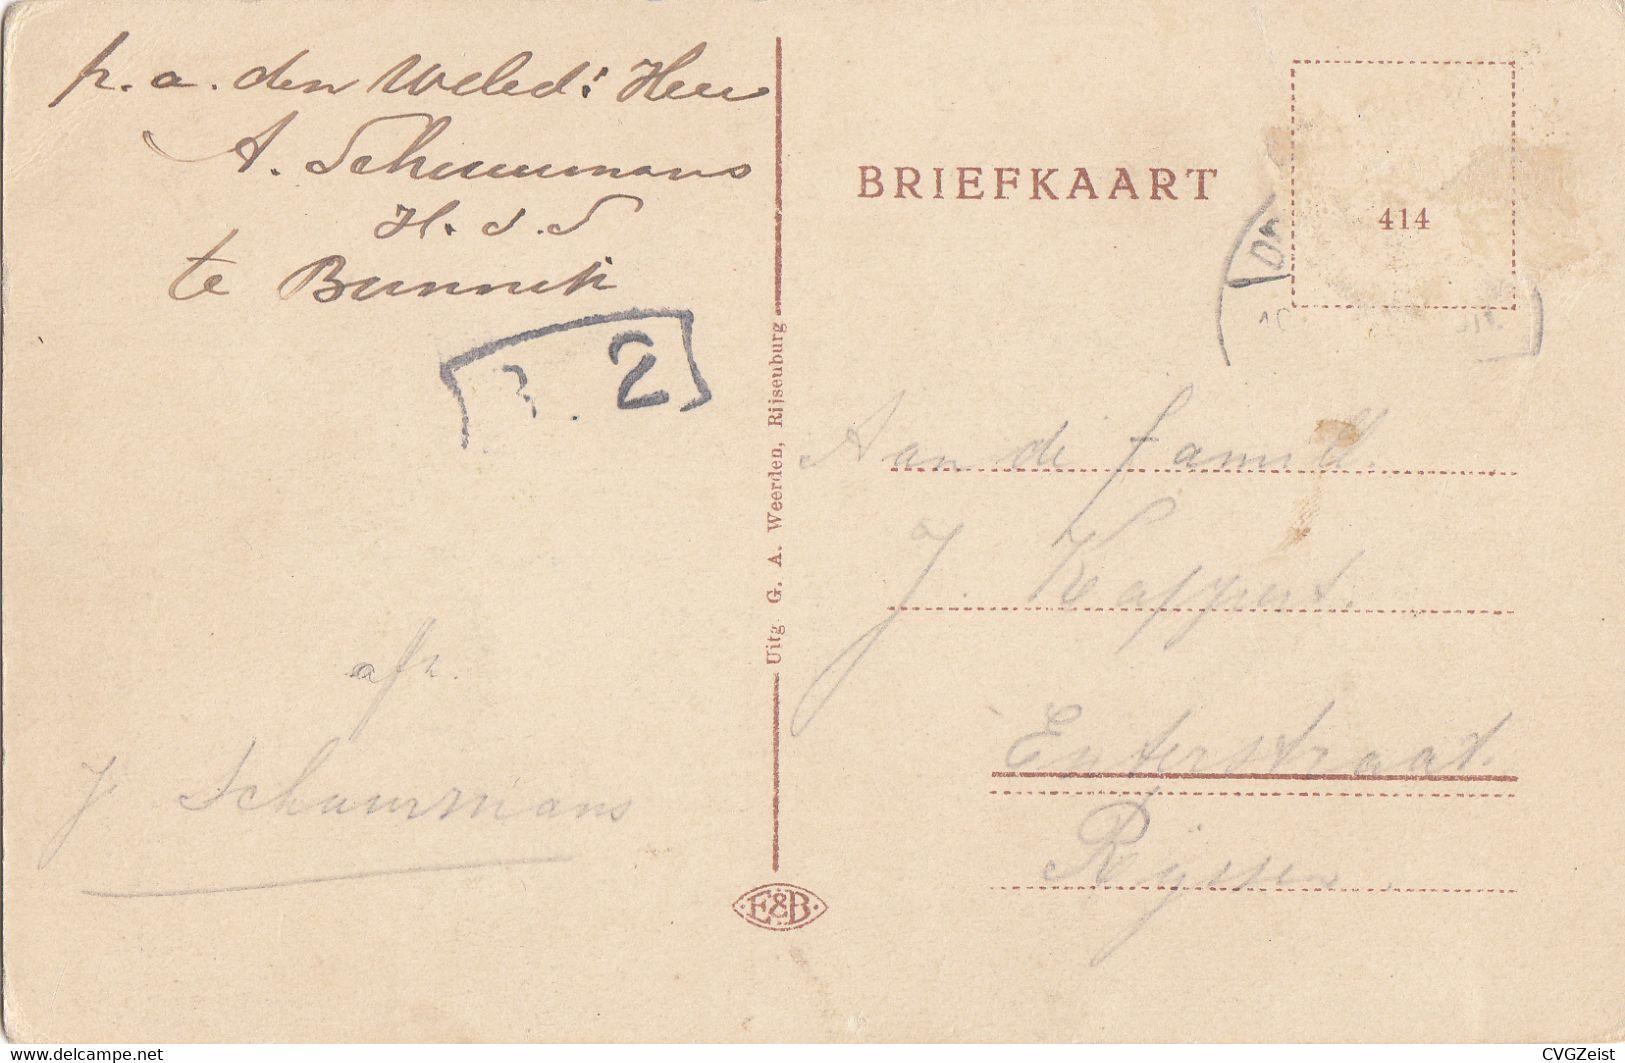 p. a. den Weled: Heer
A. Schuurmans
H. d. S
te Bunnik
2
afz.
J Schuurmans
Uitg G. A. Weerden, Rijsenburg
E&B
BRIEFKAART
414
Aan de famill.
J. Kappert.
Enterstraat.
Rijssen.
www.delcampe.net
CVGZeist